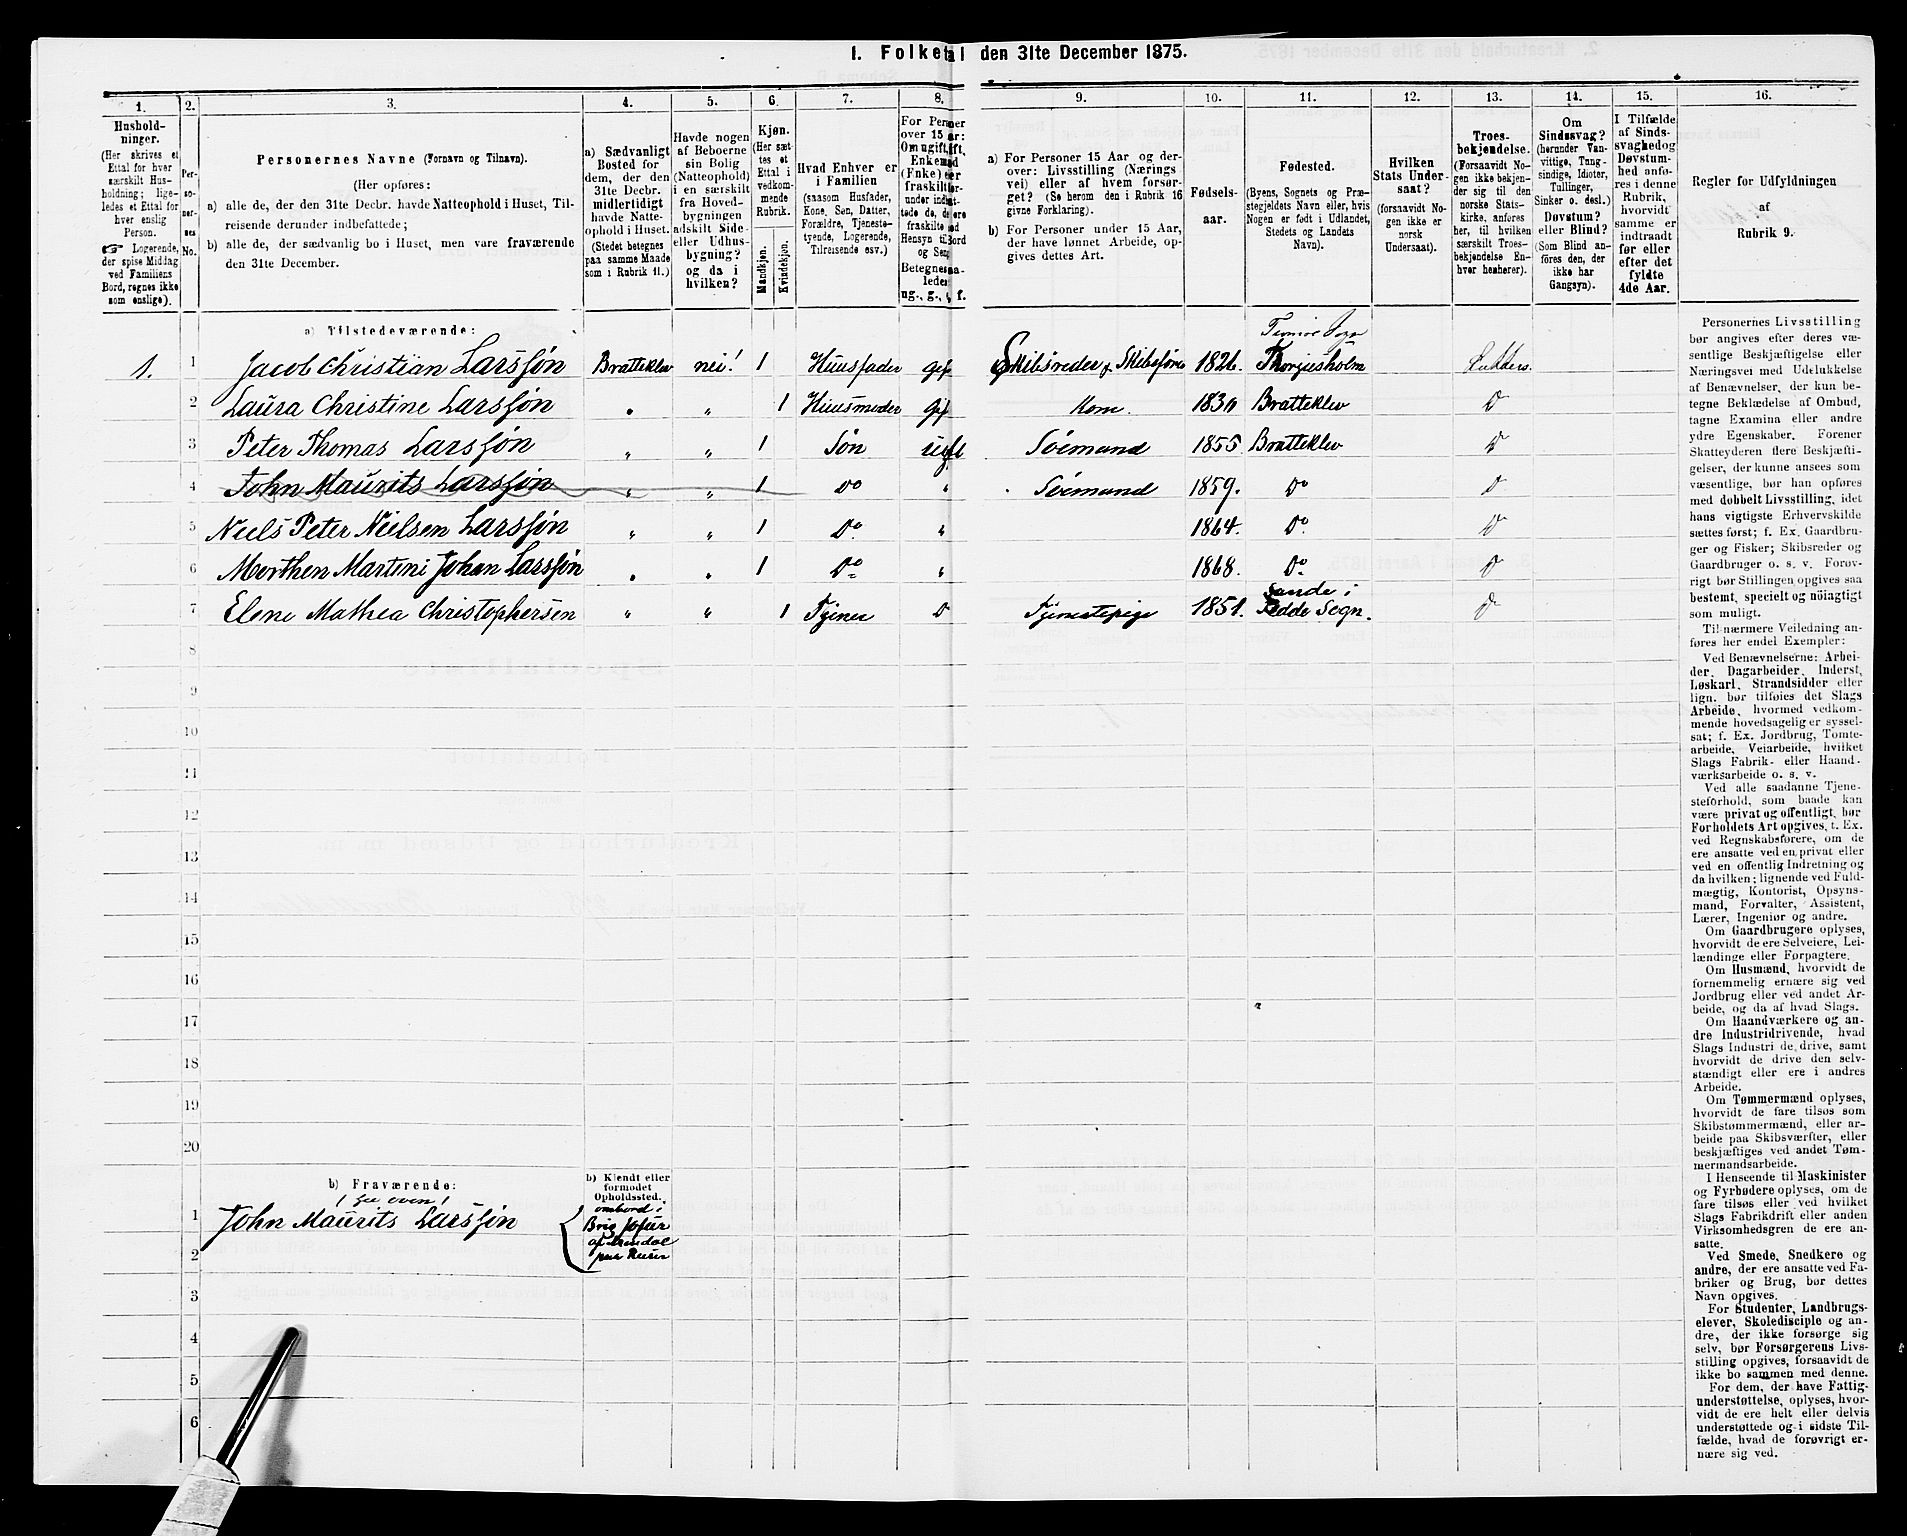 1. Folketal den 31te December 1875.
1.
2.
3.
4.
5.
6.
7.
8.
9.
10.
11.
12.
13.
14.
15.
16.
Hushold-
ninger.
(Her skrives et
Ettal for hver
særskilt Hus-
holdning; lige-
ledes et Ettal for
hver enslig
Person.
☞ Logerende,
der spise Middag
ved Familiens
Bord, regnes ikke
som enslige).
Per-
so-
ner-
nes
No.
Personernes Navne (Fornavn og Tilnavn).
(Her opføres:
a) alle de, der den 31te Decbr. havde Natteophold i Huset, Til-
reisende derunder indbefattede;
b) alle de, der sædvanlig bo i Huset, men vare fraværende
den 31te December.
a) Sædvanligt
Bosted for
dem, der den
31te Decbr.
midlertidigt
havde Natte-
ophold i Huset.
(Stedet betegnes
paa samme Maade
som i Rubrik 11.)
Havde nogen
af Beboerne
sin Bolig
(Natteophold)
i en særskilt
fra Hoved-
bygningen
adskilt Side-
eller Udhus-
bygning?
og da i
hvilken?
Kjøn.
(Her sæt-
tes et
Ettal i
vedkom-
mende
Rubrik.
Mandkjøn.
Kvindekjøn.
Hvad Enhver er
i Familien
(saasom Husfader,
Kone, Søn, Datter,
Forældre, Tjeneste-
tyende, Logerende,
Tilreisende osv.)
For Personer
over 15 Aar:
Om ugift, gift,
Enkemand
(Enke) eller
fraskilt
Betegnes saa-
ledes:
ug., g., e., f.
a) For Personer 15 Aar og der-
over: Livsstilling (Nærings
vei) eller af hvem forsør-
get? (Se herom den i Rubrik 16
givne Forklaring).
b) For Personer under 15 Aar,
der have lønnet Arbeide, op-
gives dettes Art.
Fødsels-
aar.
Fødested.
(Byens, Sognets og Præ-
stegjeldets Navn eller, hvis
Nogen er født i Udlandet,
Stedets og Landets
Navn).
Hvilken
Stats Under-
saat?
(forsaavidt No-
gen ikke er
norsk
Undersaat).
Troes-
bekjendelse.
(Forsaavidt No-
gen ikke bekjen-
der sig til den
norske Stats-
kirke, anføres
her, til hvilken
særskilt Troes-
bekjendelse En-
hver henhører).
Om
Sindssvag?
(herunder Van-
vittige, Tung-
sindige, Idioter,
Tullinger,
Sinker o. desl.)
Døvstum?
eller Blind?
(Som Blind an-
føres den, der
ikke har
Gangsyn).
I Tilfælde
af Sinds-
svaghed og
Døvstum-
hed anfø-
res i denne
Rubrik,
hvorvidt
samme er
indtraadt
før eller
efter det
fyldte
4de Aar.
Regler for Udfyldningen
af
Rubrik 9.
a) Tilstedeværende:
1. 1 Jacob Christian Larssøn Bratteklev nei! 1 Huusfader gift Skibsreder & Skibsfører 1826. Thorjusholm Luthers.
2 Laura Christine Larssøn " " 1 Huusmoder gift Kone. 1830 Bratteklev D
3 Peter Thomas Larssøn " " 1 Søn ugift Sømand 1855 Bratteklev D
4 John Maurits Larssøn " " 1 Do " Sømand 1859. Do D
5 Niels Peter Nielsen Larssøn " " 1 Do " 1864. Do D
6 Morthen Martini Johan Larssøn " " 1 Do " 1868. Do D
7 Elene Mathea Christophersen " " 1 Tjener D Tjenestepige 1851. Sande i
Sogn. D
8
9
10
11
12
13
14
15
16
17
18
19
20
b) Fraværende:
(see oven)
b) Kjendt eller
formodet
Opholdssted.
1 John Maurits Larssøn
ombord i
Brig
af Arendal
paa Reiser
2
3
4
5
6
Personernes Livsstilling
bør angives efter deres væ-
sentlige Beskjæftigelse eller
Næringsvei med Udelukkelse
af Benævnelser, der kun be-
tegne Beklædelse af Ombud,
tagne Examina eller andre
ydre Egenskaber. Forener
Skatteyderen flere Beskjæfti-
gelser, der kunne ansees som
væsentlige, bør han opføres
med dobbelt Livsstilling, idet
hans vigtigste Erhvervskilde
sættes først; f. Ex. Gaardbru-
ger og Fisker; Skibsreder og
Gaardbruger o. s. v. Forøv-
rigt bør Stillingen opgives saa
bestemt, specielt og nöiagtigt
som muligt.
Til nærmere Veiledning an-
føres her endel Exempler:
Ved Benævnelserne: Arbei-
der, Dagarbeider, Inderst,
Løskarl, Strandsidder eller
lign. bør tilføies det Slags
Arbeide, hvormed vedkom-
mende hovedsagelig er syssel-
sat; f. Ex. Jordbrug, Tomte-
arbeide, Veiarbeide, hvilket
Slags Fabrik- eller Haand-
værksarbeide o. s. v.
Ved alle saadanne Tjene-
steforhold, som baade kan
være privat og offentligt, bør
Forholdets Art opgives, t. Ex.
ved Regnskabsførere, om de
ere ansatte ved en privat eller
ved en offentlig Indretning og
da hvilken; lignende ved Fuld-
mægtig, Kontorist, Opsyns-
mand, Forvalter, Assistent,
Lærer, Ingeniør og andre.
Om Gaardbrugere oplyses,
hvorvidt de ere Selveiere, Lei-
lændinge eller Forpagtere.
Om Husmænd, hvorvidt de
fornemmelig ernære sig ved
Jordbrug eller ved andet Ar-
beide, og da af hvad Slags.
Om Haandværkere og an-
dre Industridrivende, hvad
Slags Industri de drive, samt
hvorvidt de drive den selv-
stændigt eller ere i andres
Arbeide.
Om Tømmermænd oplyses,
hvorvidt de fare tilsøs som
Skibstømmermænd, eller ar-
beide paa Skibsværfter, eller
beskjæftiges ved andet Tøm-
mermandsarbeide.
I Henseende til Maskinister
og Fyrbødere oplyses, om de
fare tilsøs eller ved hvilket
Slags Fabrikdrift eller anden
Virksomhedsgren de ere an-
satte.
Ved Smede, Snedkere og
andre, der ere ansatte ved Fa-
briker og Brug, bør dettes
Navn opgives.
For Studenter, Landbrugs-
elever, Skoledisciple og an-
dre, der ikke forsørge sig
selv, bør Forsørgerens Livs-
stilling opgives, forsaavidt de
ikke bo sammen med denne.
For dem, der have Fattig-
understøttelse, oplyses, hvor-
vidt de ere helt eller delvis
understøttede og i sidste Til-
fælde, hvad de forøvrigt er-
nære sig ved.